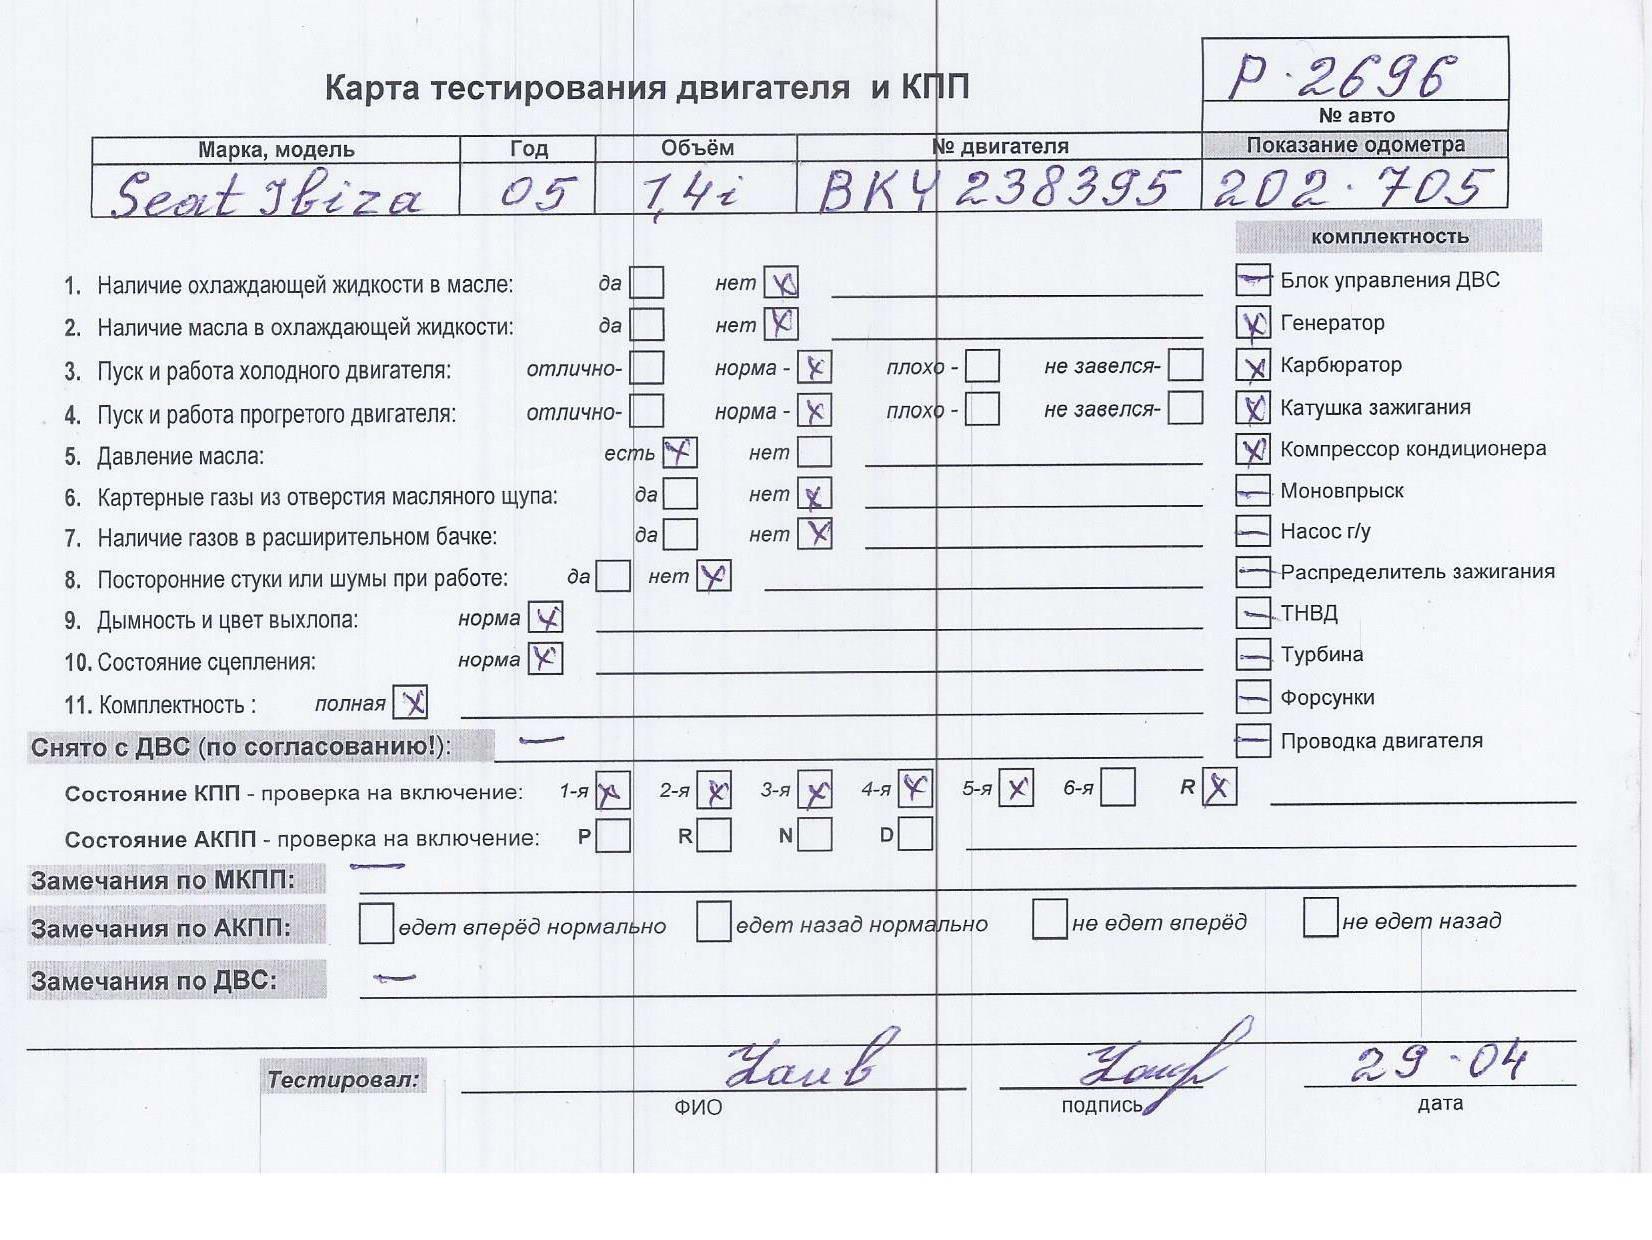 Р·2696
Карта тестирования двигателя и КПП
№ авто
Марка, модель Год Объём № двигателя Показание одометра
Seat Ibiza 05 1,4i BKY 238395 202·705
комплектность
1. Наличие охлаждающей жидкости в масле: да нет Блок управления ДВС
2. Наличие масла в охлаждающей жидкости: да нет Генератор
3. Пуск и работа холодного двигателя: отлично- норма - плохо - не завелся- Карбюратор
4. Пуск и работа прогретого двигателя: отлично- норма - плохо - не завелся- Катушка зажигания
5. Давление масла: есть нет Компрессор кондиционера
6. Картерные газы из отверстия масляного щупа: да нет Моновпрыск
7. Наличие газов в расширительном бачке: да нет Насос г/у
8. Посторонние стуки или шумы при работе: да нет Распределитель зажигания
9. Дымность и цвет выхлопа: норма ТНВД
10. Состояние сцепления: норма Турбина
11. Комплектность : полная Форсунки
Снято с ДВС (по согласованию!): — Проводка двигателя
Состояние КПП - проверка на включение: 1-я 2-я 3-я 4-я 5-я 6-я R
Состояние АКПП - проверка на включение: P R N D
Замечания по МКПП: —
Замечания по АКПП: едет вперёд нормально едет назад нормально не едет вперёд не едет назад
Замечания по ДВС: —
Тестировал: 29-04
ФИО подпись дата